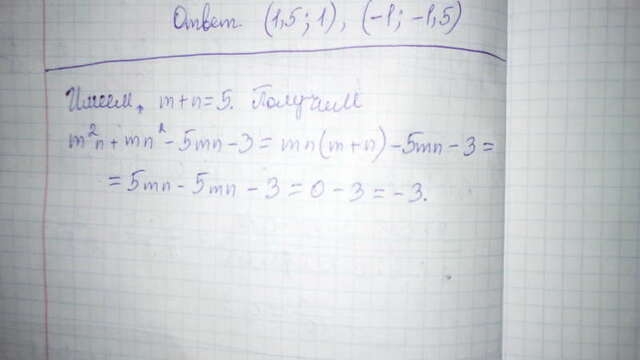 Ответ. (1,5; 1), (-1; -1,5)
Имеем, m+n=5. Получим
m²n + mn² - 5mn - 3 = mn(m+n) - 5mn - 3 =
= 5mn - 5mn - 3 = 0 - 3 = -3.